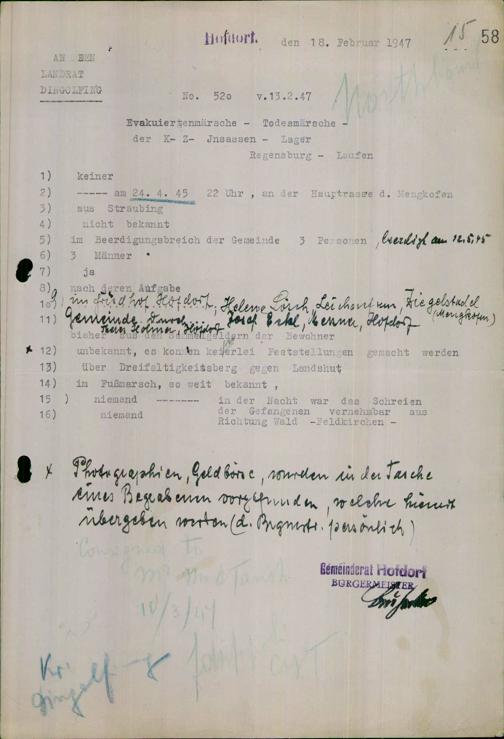 Hofdorf. den 18. Februar 1947 15 58
AN DEN
LANDRAT
DINGOLFING
No. 520 v.13.2.47
Evakuiertenmärsche - Todesmärsche -
der K- Z- Jnsassen - Lager
Regensburg - Laufen
1) keiner
2) ----- am 24. 4. 45 22 Uhr , an der Hauptrasse d. Mengkofen
3) aus Straubing
4) nicht bekannt
5) im Beerdigungsbreich der Gemeinde 3 Personen , beerdigt am 12.5.45
6) 3 Männer
7) ja
8) nach deren Aufgabe
9) im Friedhof Hofdorf, Helene Lösch, Ziegelstadel
10) (Mengkofen)
11) Gemeinde, durch Josef Ertl, Hofdorf
bisher aus den Sammengeldern der Bewohner
x 12) unbekannt, es konnen keinerlei Feststellungen gemacht werden
13) über Dreifaltigkeitsberg gegen Landshut
14) im Fußmarsch, so weit bekannt ,
15 ) niemand ------- in der Nacht war das Schreien
16) niemand der Gefangenen vernehmbar aus
Richtung Wald -Feldkirchen -
x Photographien, Geldbörse, wurden in der Tasche
eines Begrabenen vorgefunden, welche hiermit
übergeben werden (d. Brgmstr. persönlich)
Consigned to
10/3/47
Gemeinderat Hofdorf
BÜRGERMEISTER
Kr.
Dingolfing